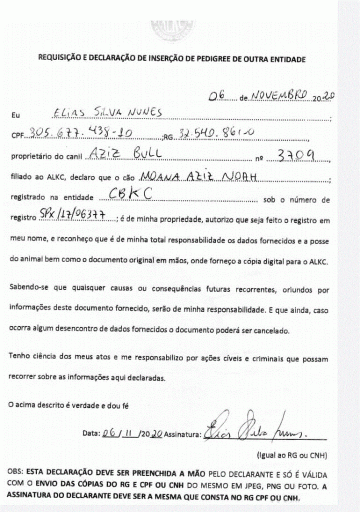 REQUISIÇÃO E DECLARAÇÃO DE INSERÇÃO DE PEDIGREE DE OUTRA ENTIDADE
06 de NOVEMBRO 2020
Eu ELIAS SILVA NUNES;
CPF 305.677.438-10 ;RG 32.540.861-0
proprietário do canil AZIZ BULL nº 3709,
filiado ao ALKC, declaro que o cão MOANA AZIZ NOAH
registrado na entidade CBKC sob o número de
registro SPX/17/06377; é de minha propriedade, autorizo que seja feito o registro em
meu nome, e reconheço que é de minha total responsabilidade os dados fornecidos e a posse
do animal bem como o documento original em mãos, onde forneço a cópia digital para o ALKC.
Sabendo-se que quaisquer causas ou consequências futuras recorrentes, oriundos por
informações deste documento fornecido, serão de minha responsabilidade. E que ainda, caso
ocorra algum desencontro de dados fornecidos o documento poderá ser cancelado.
Tenho ciência dos meus atos e me responsabilizo por ações cíveis e criminais que possam
recorrer sobre as informações aqui declaradas.
O acima descrito é verdade e dou fé
Data: 06/11/2020 Assinatura: Elias Silva Nunes
(Igual ao RG ou CNH)
OBS: ESTA DECLARAÇÃO DEVE SER PREENCHIDA A MÃO PELO DECLARANTE E SÓ É VÁLIDA
COM O ENVIO DAS CÓPIAS DO RG E CPF OU CNH DO MESMO EM JPEG, PNG OU FOTO. A
ASSINATURA DO DECLARANTE DEVE SER A MESMA QUE CONSTA NO RG CPF OU CNH.